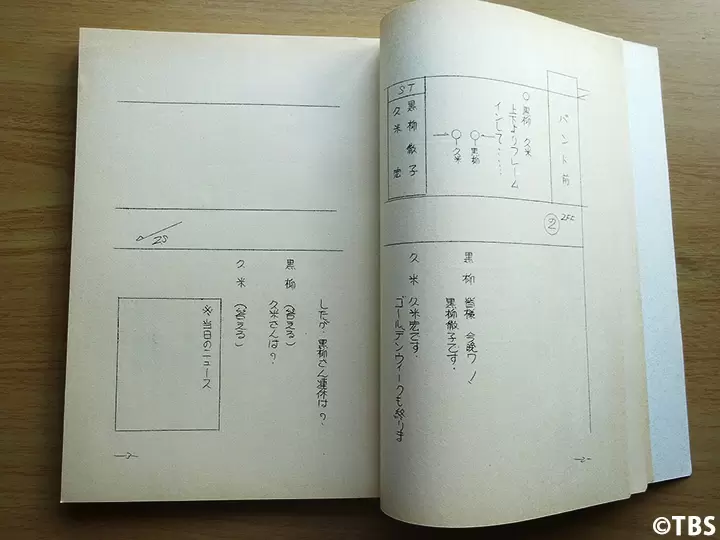 バンド前
○黒柳 久米
上下よりフレーム
インして‥‥‥
→○ ○←
久米 黒柳
ST
黒柳徹子
久米 宏
②
255
黒柳 皆様 今晩ワ!
黒柳徹子です。
久米 久米宏です。
ゴールデンウィークも終りま
-2-
25
したが、黒柳さん連休は?
黒柳 (答える)
久米さんは?
久米 (答える)
※当日のニュース
©TBS